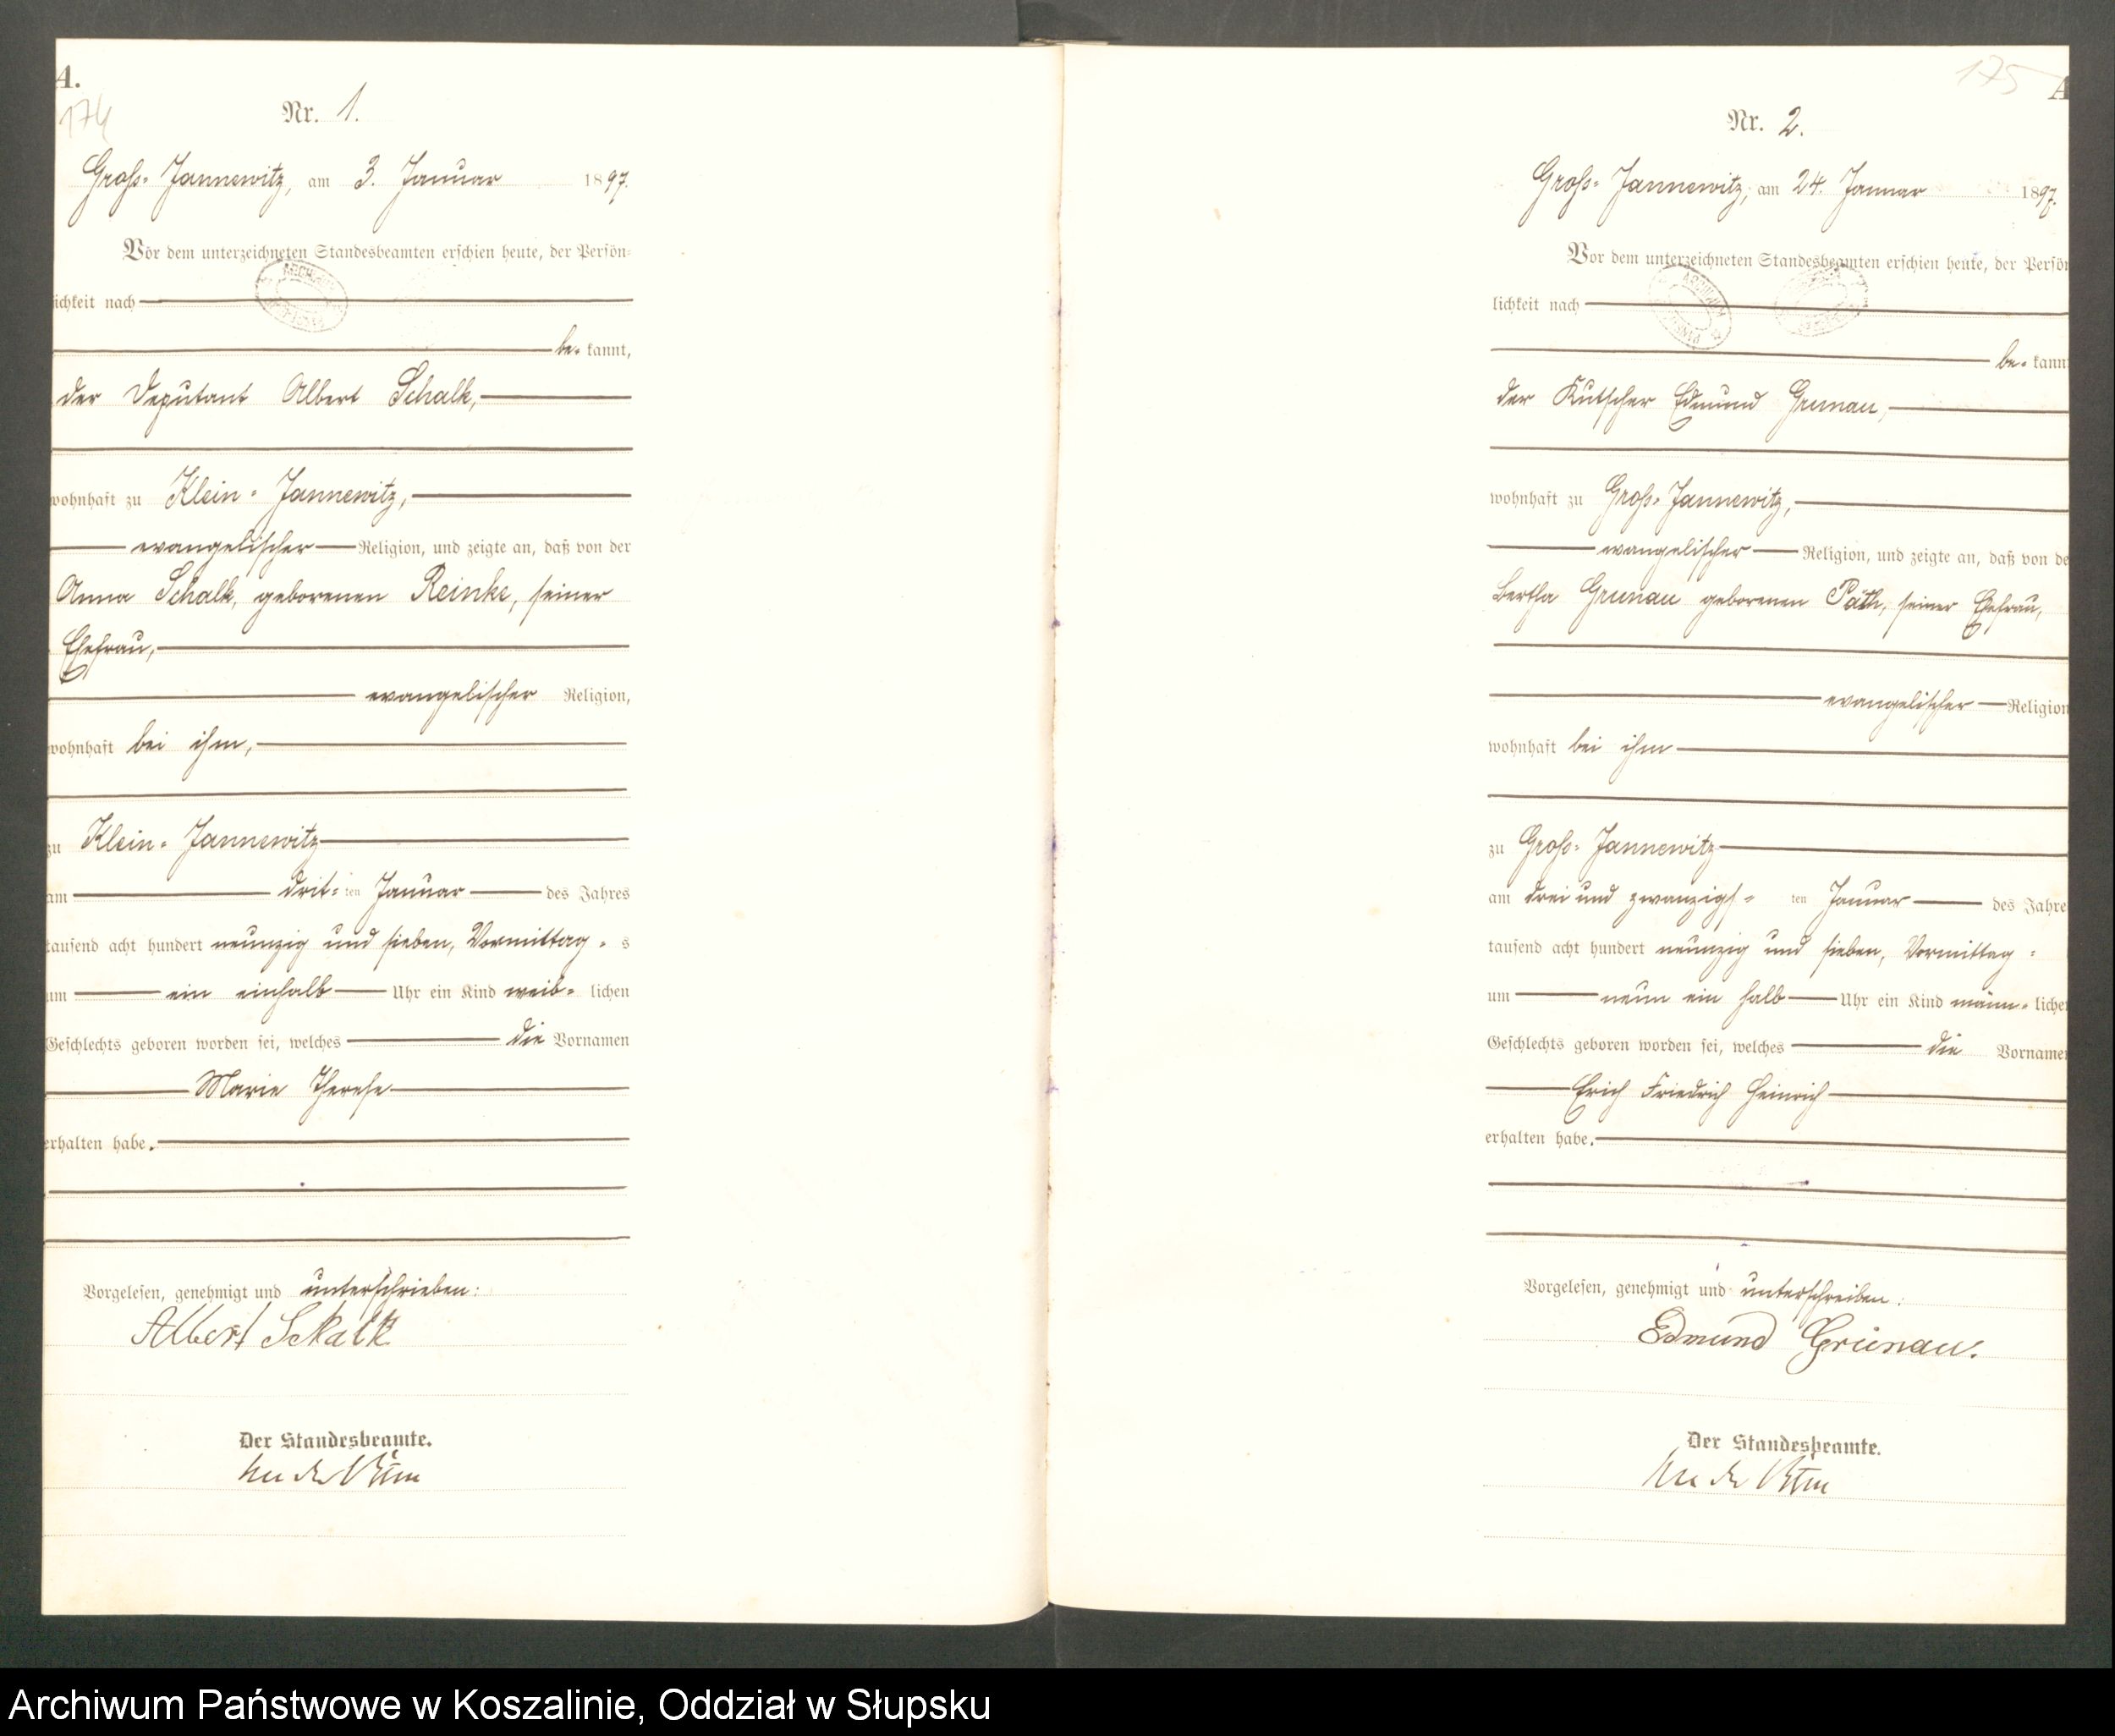 A.
174
Nr. 1.
Groß-Jannewitz, am 3. Januar 1897.
Vor dem unterzeichneten Standesbeamten erschien heute, der Persön-
lichkeit nach
be-kannt,
der Deputant Albert Schalk,
wohnhaft zu Klein-Jannewitz,
evangelischer Religion, und zeigte an, daß von der
Anna Schalk, geborenen Reinke, seiner
Ehefrau,
evangelischer Religion,
wohnhaft bei ihm,
zu Klein-Jannewitz
am drit-ten Januar des Jahres
tausend acht hundert neunzig und sieben, Vormittag-s
um ein einhalb Uhr ein Kind weib-lichen
Geschlechts geboren worden sei, welches die Vornamen
Marie Therese
erhalten habe.
Vorgelesen, genehmigt und unterschrieben:
Albert Schalk
Der Standesbeamte.
175
A
Nr. 2.
Groß-Jannewitz, am 24. Januar 1897.
Vor dem unterzeichneten Standesbeamten erschien heute, der Persön
lichkeit nach
be-kann
der Kutscher Edmund Grunau,
wohnhaft zu Groß-Jannewitz,
evangelischer Religion, und zeigte an, daß von de
Bertha Grunau geborenen Päth, seiner Ehefrau,
evangelischer Religion
wohnhaft bei ihm
zu Groß-Jannewitz
am drei und zwanzigs-ten Januar des Jahre
tausend acht hundert neunzig und sieben, Vormittag-
um neun ein halb Uhr ein Kind männ-liche
Geschlechts geboren worden sei, welches die Vorname
Erich Friedrich Heinrich
erhalten habe.
Vorgelesen, genehmigt und unterschreiben:
Edmund Grünau.
Der Standesbeamte.
Archiwum Państwowe w Koszalinie, Oddział w Słupsku